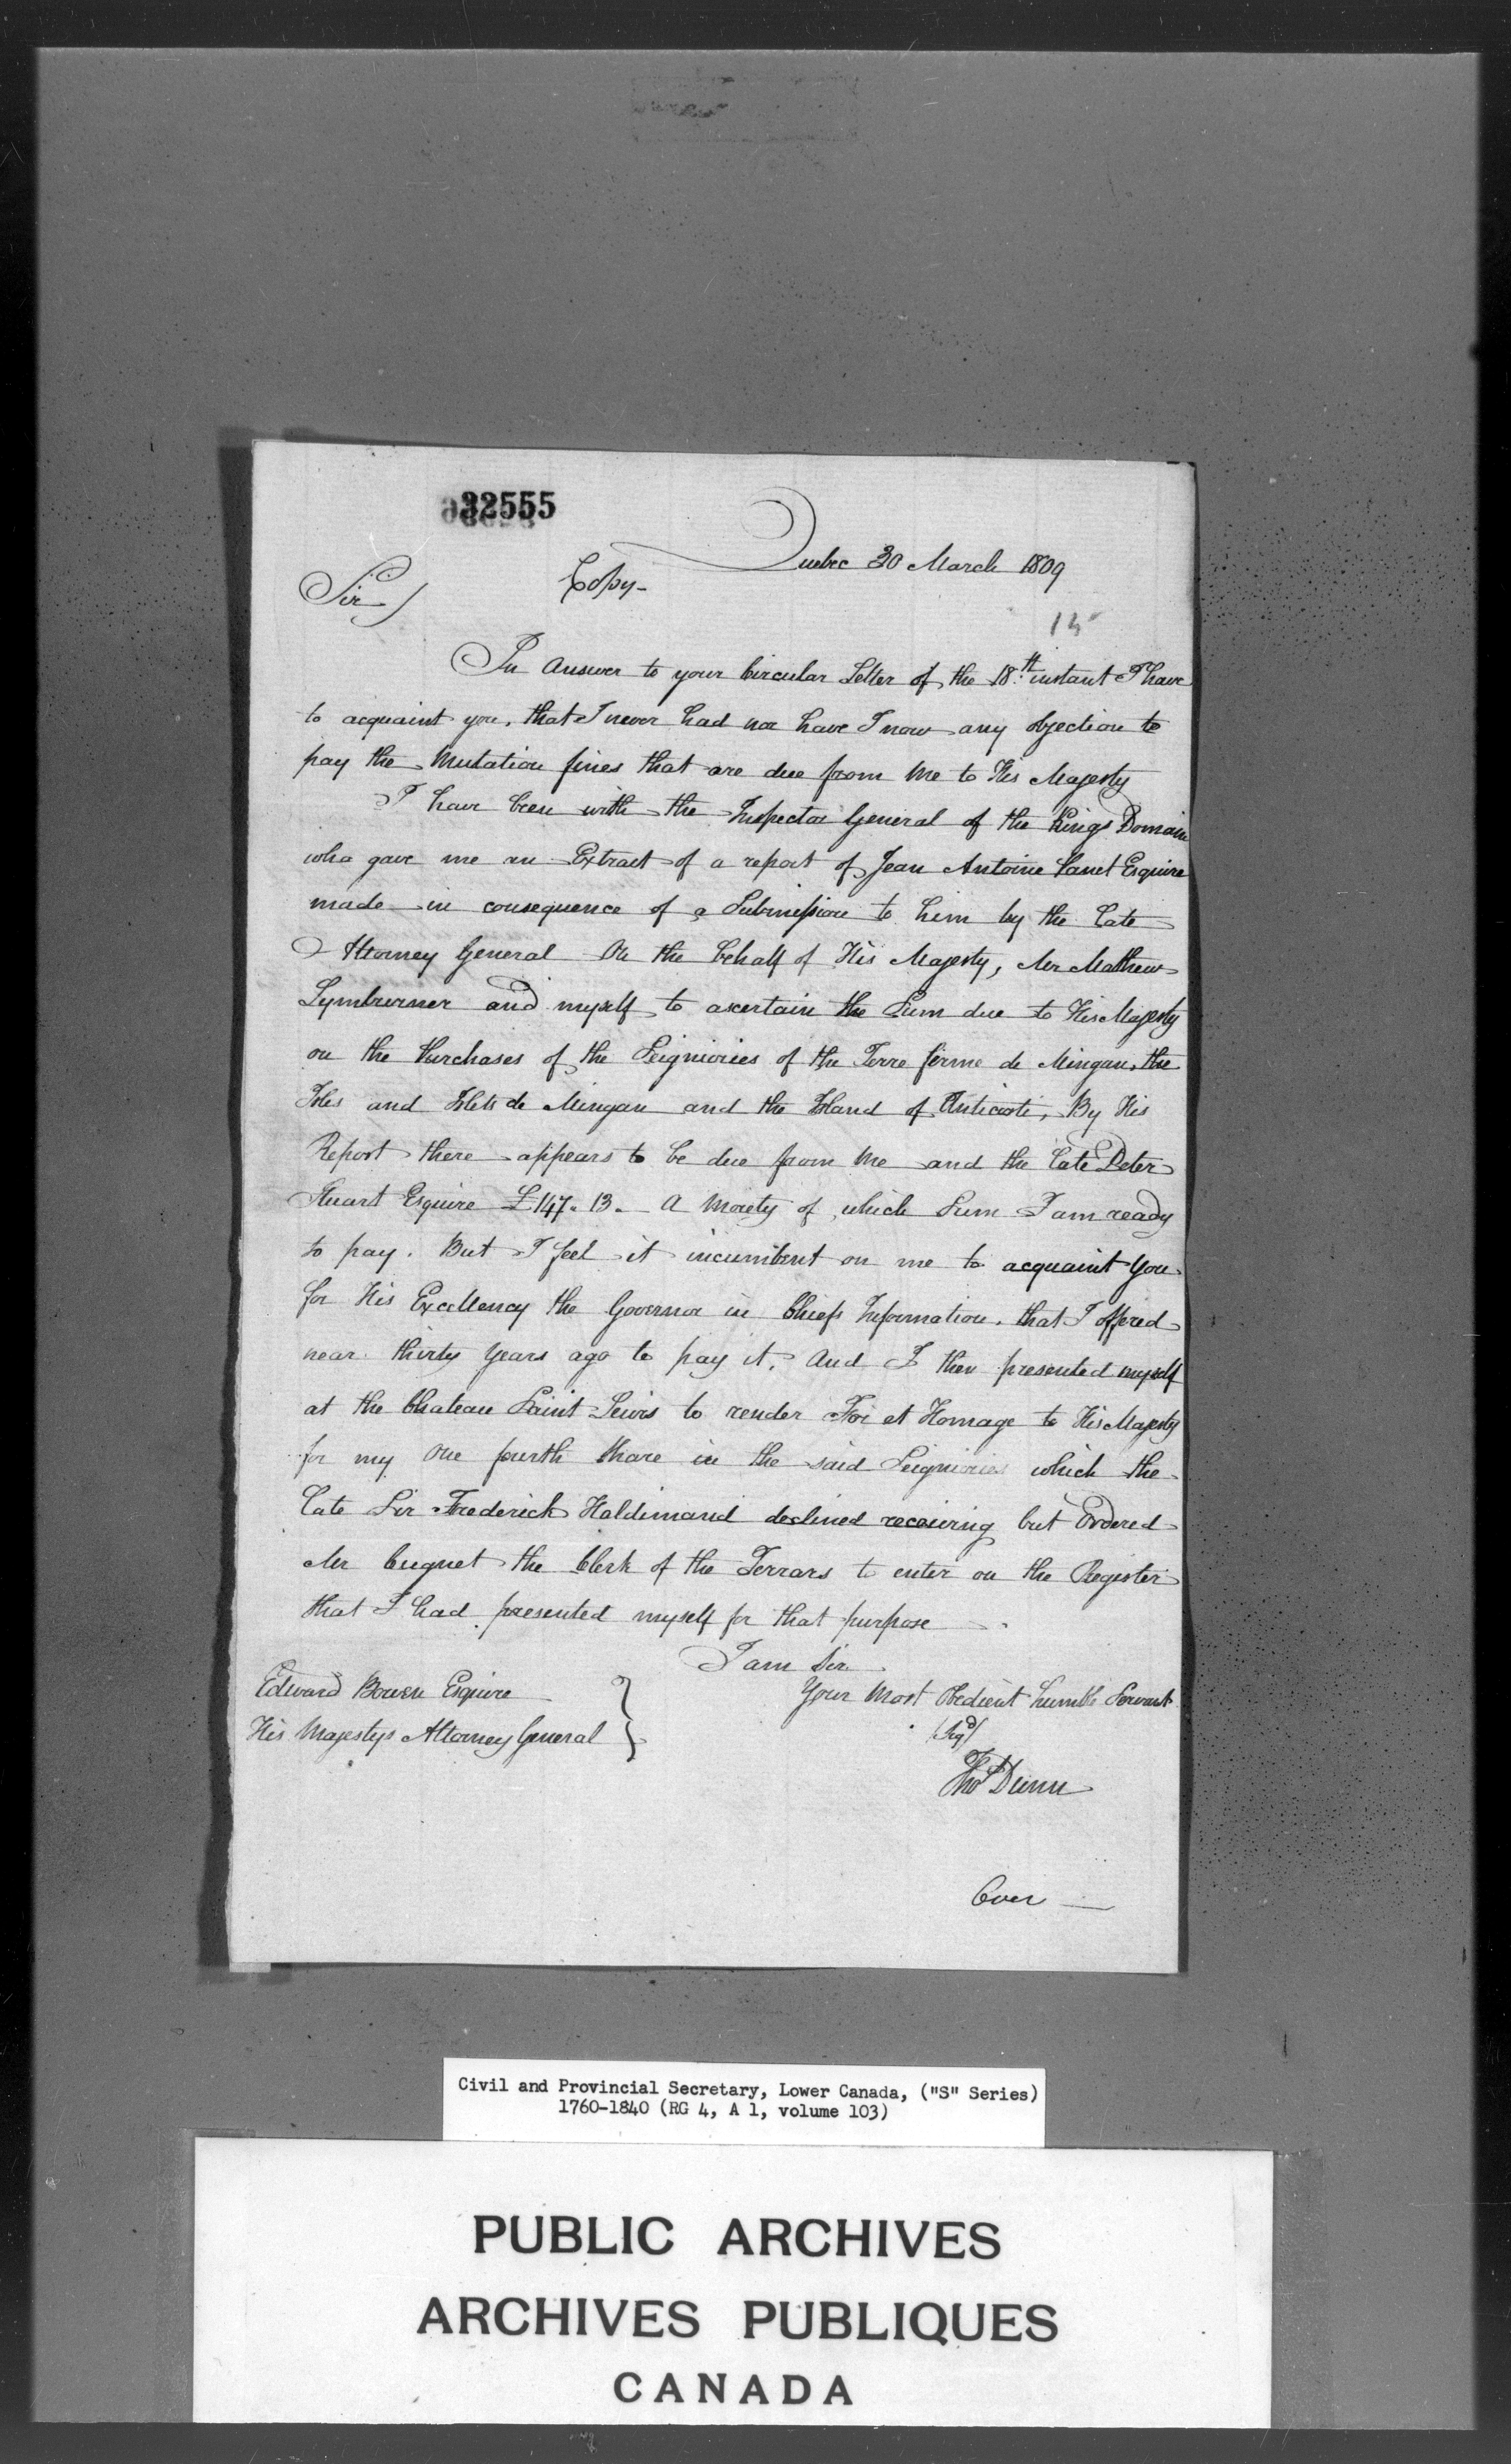 32555
Quebec 30 March 1809
Copy-
Sir/
15
In Answer to your Circular Letter of the 18th instant I have
to acquaint you, that I never had nor have I now any objection to
pay the Mutation fines that are due from Me to His Majesty
I have been with the Inspector General of the Kings Domain
who gave me an Extract of a report of Jean Antoine Panet Esquire
made in consequence of a Submission to him by the Late
Attorney General On the behalf of His Majesty, Mr Mathew
Lymburner and myself to ascertain the Sum due to His Majesty
on the Purchases of the Seigniories of the Terre firme de Mingan, the
Isles and Islets de Mingan and the Island of Anticosti, By His
Report there appears to be due from Me and the Late Peter
Stuart Esquire £147. 13. - A Moiety of which Sum I am ready
to pay. But I feel it incumbent on me to acquaint You
for His Excellency the Governor in Chiefs Information, that I offered
near thirty Years ago to pay it, And I then presented myself
at the Chateau Saint Lewis to render Foi et Homage to His Majesty
for my One fourth Share in the said Seigniories which the
Late Sir Frederick Haldimand declined receiving but Ordered
Mr Cugnet the Clerk of the Terrars to enter on the Register
that I had presented myself for that purpose
I am Sir
Your Most Obedient humble Servant
(Sigd)
Thos Dunn
Edward Bowen Esquire
His Majestys Attorney General }
Over
Civil and Provincial Secretary, Lower Canada, ("S" Series)
1760-1840 (RG 4, A 1, volume 103)
PUBLIC ARCHIVES
ARCHIVES PUBLIQUES
CANADA